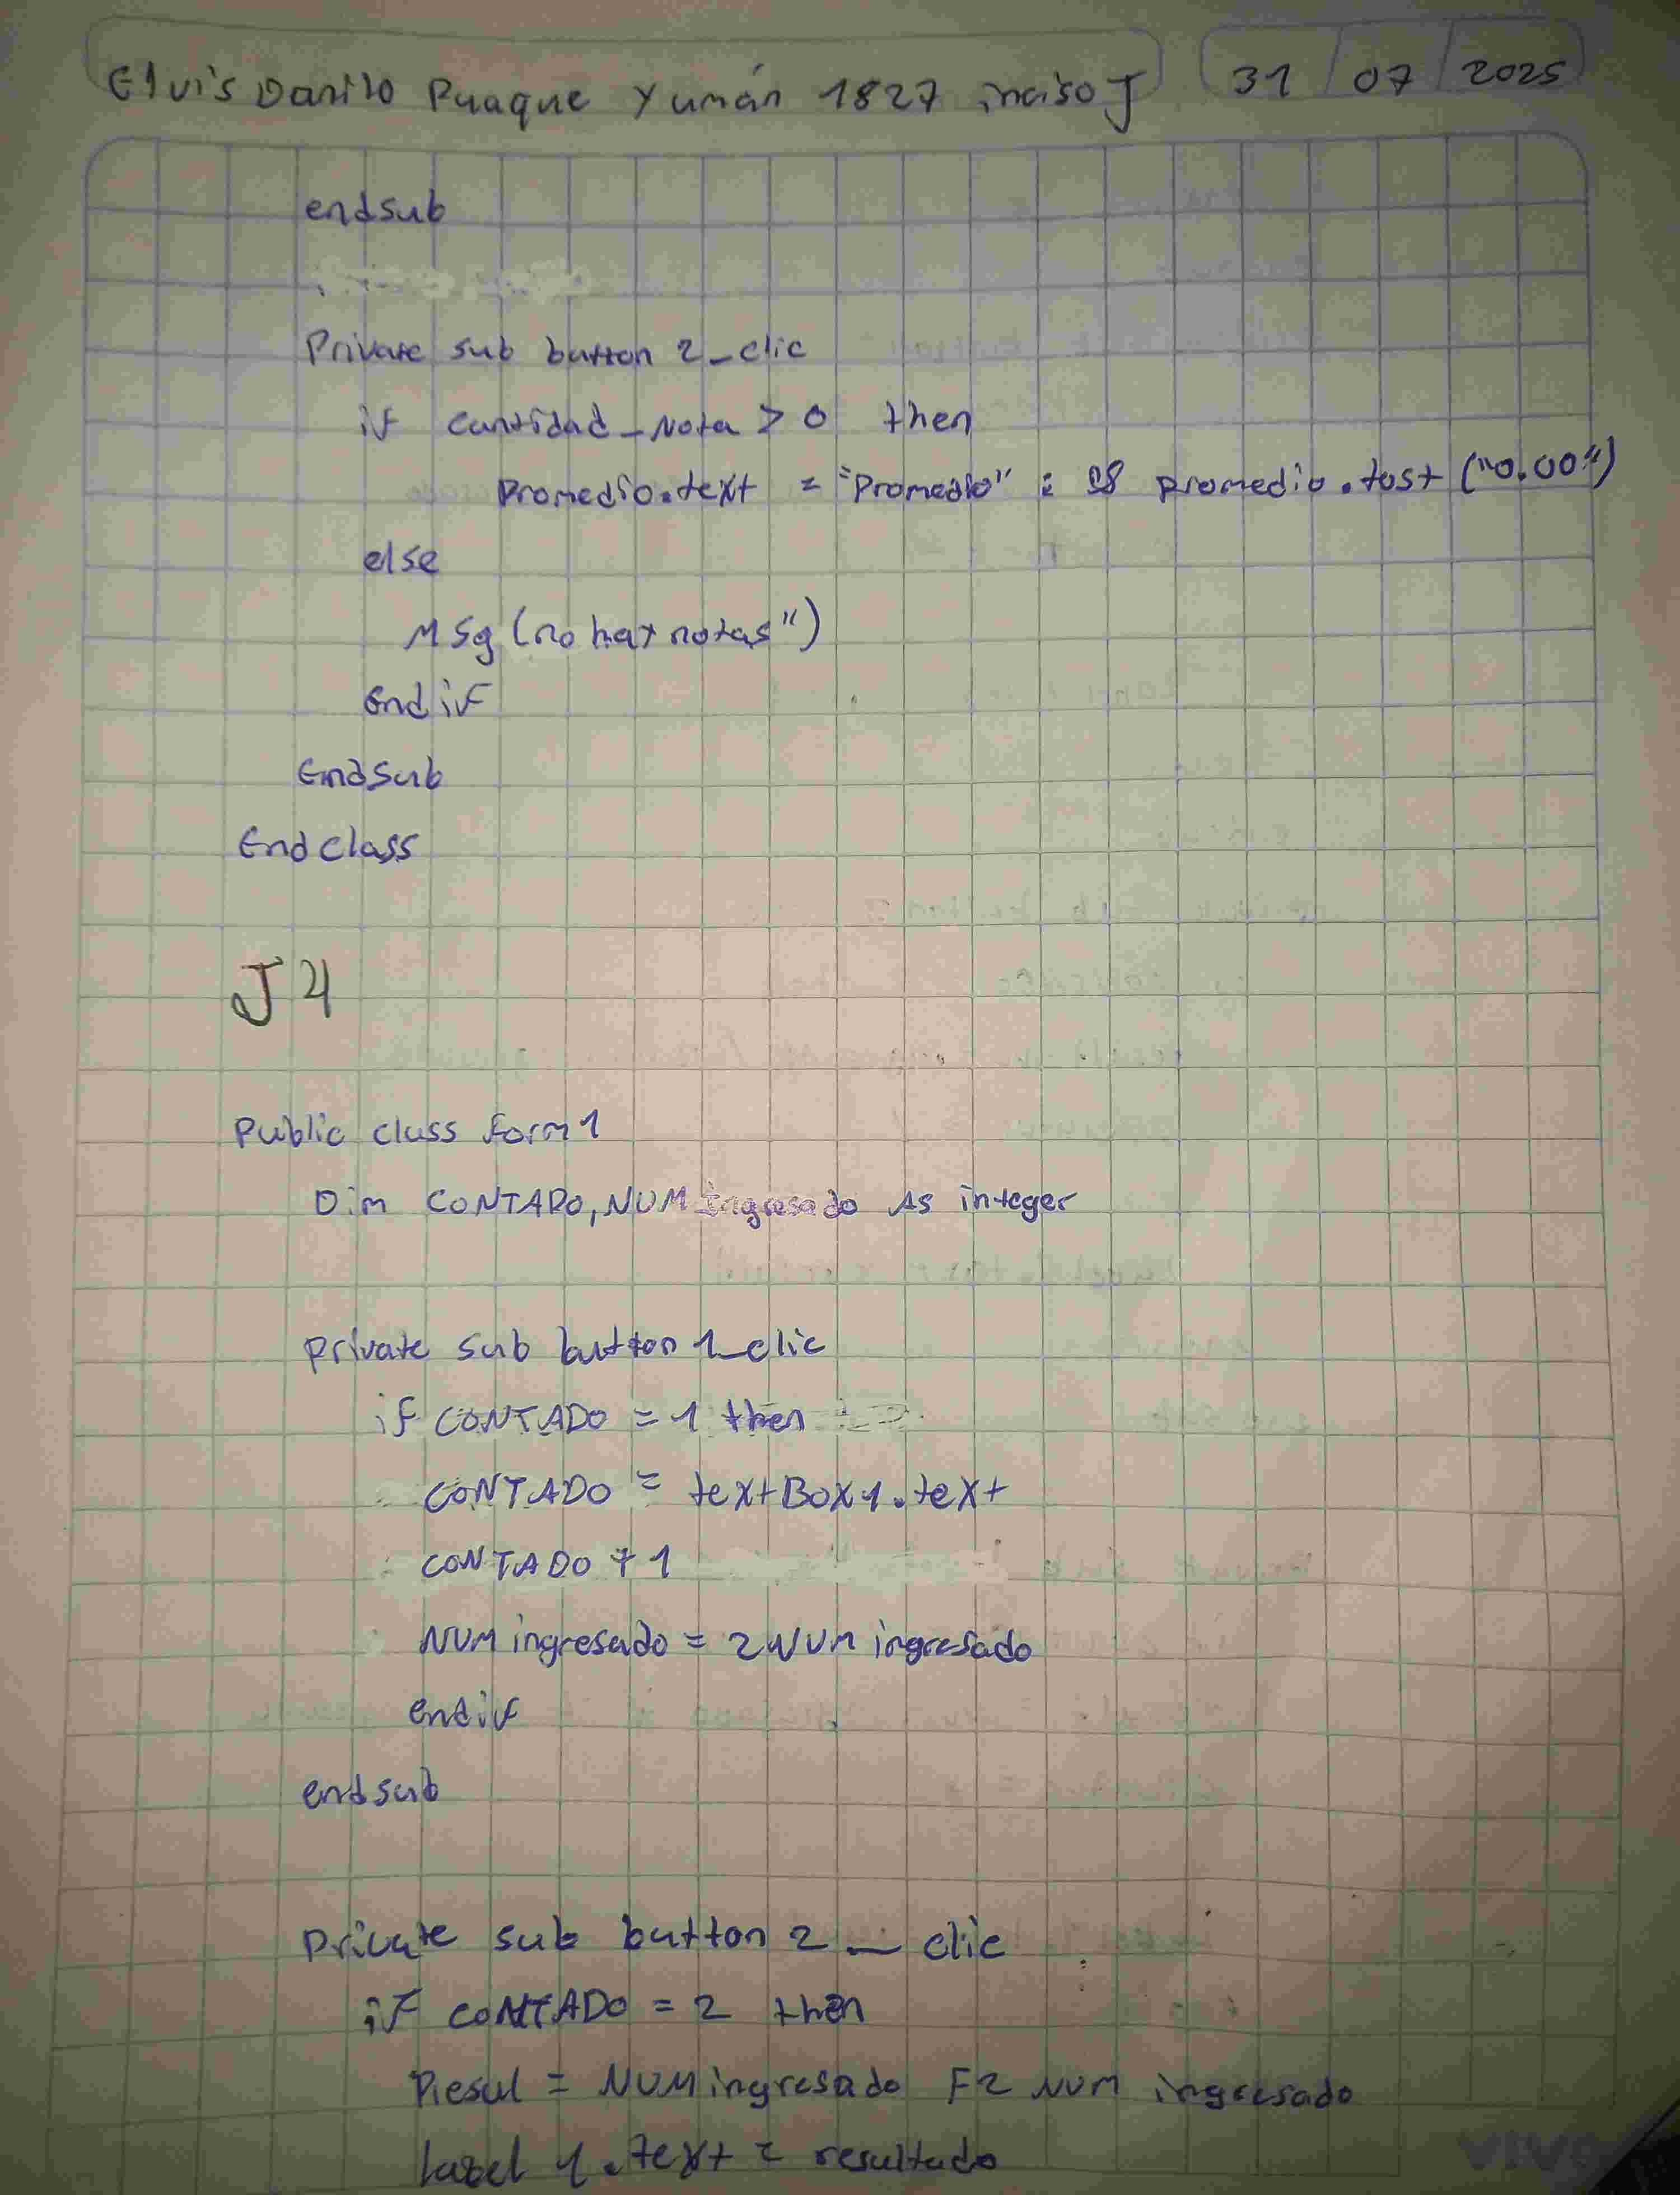 Elvis Danilo Puaque Yumán 1827 inciso J 31 / 07 / 2025
endsub
Private sub button 2_clic
if cantidad_Nota > 0 then
Promedio.text = "Promedio" : & promedio.tost ("0.00")
else
MSg (no hay notas")
End if
Endsub
End class
J4
Public class form 1
Dim CONTADO, NUM ingresado As integer
private sub button 1_clic
if CONTADO = 1 then
CONTADO = textBox1.text
CONTADO + 1
NUM ingresado = 2 NUM ingresado
endif
endsub
private sub button 2_clic
if CONTADO = 2 then
= NUM ingresado NUM ingresado
label 1.text = resultado
vivo